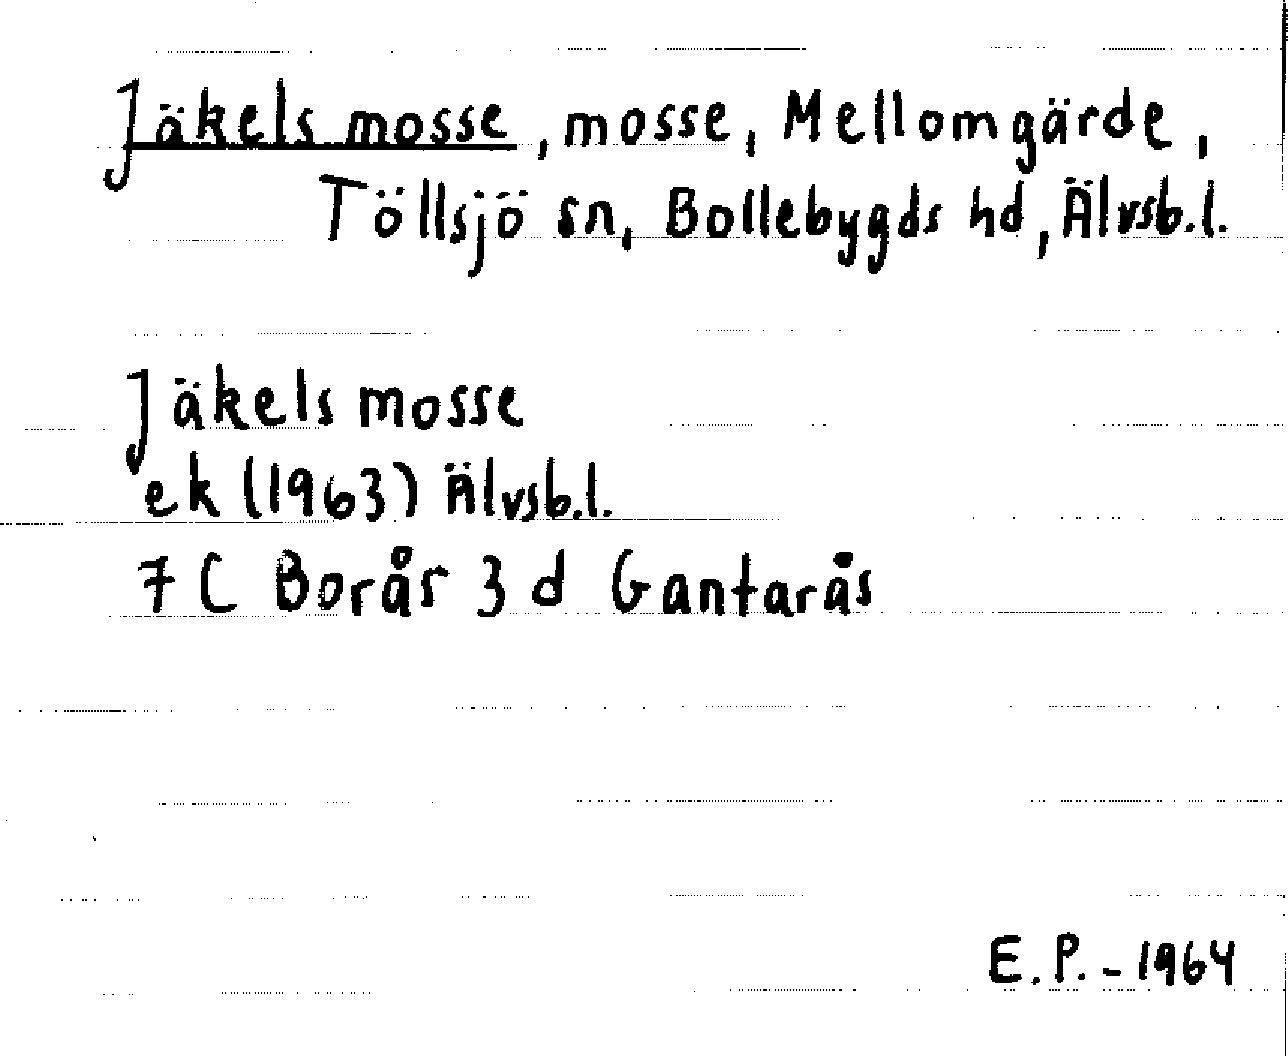 Jäkels mosse, mosse, Mellomgärde,
Töllsjö sn, Bollebygds hd, Älvsb.l.
Jäkels mosse
ek (1963) Älvsb.l.
7 C Borås 3 d Gantarås
E.P. - 1964